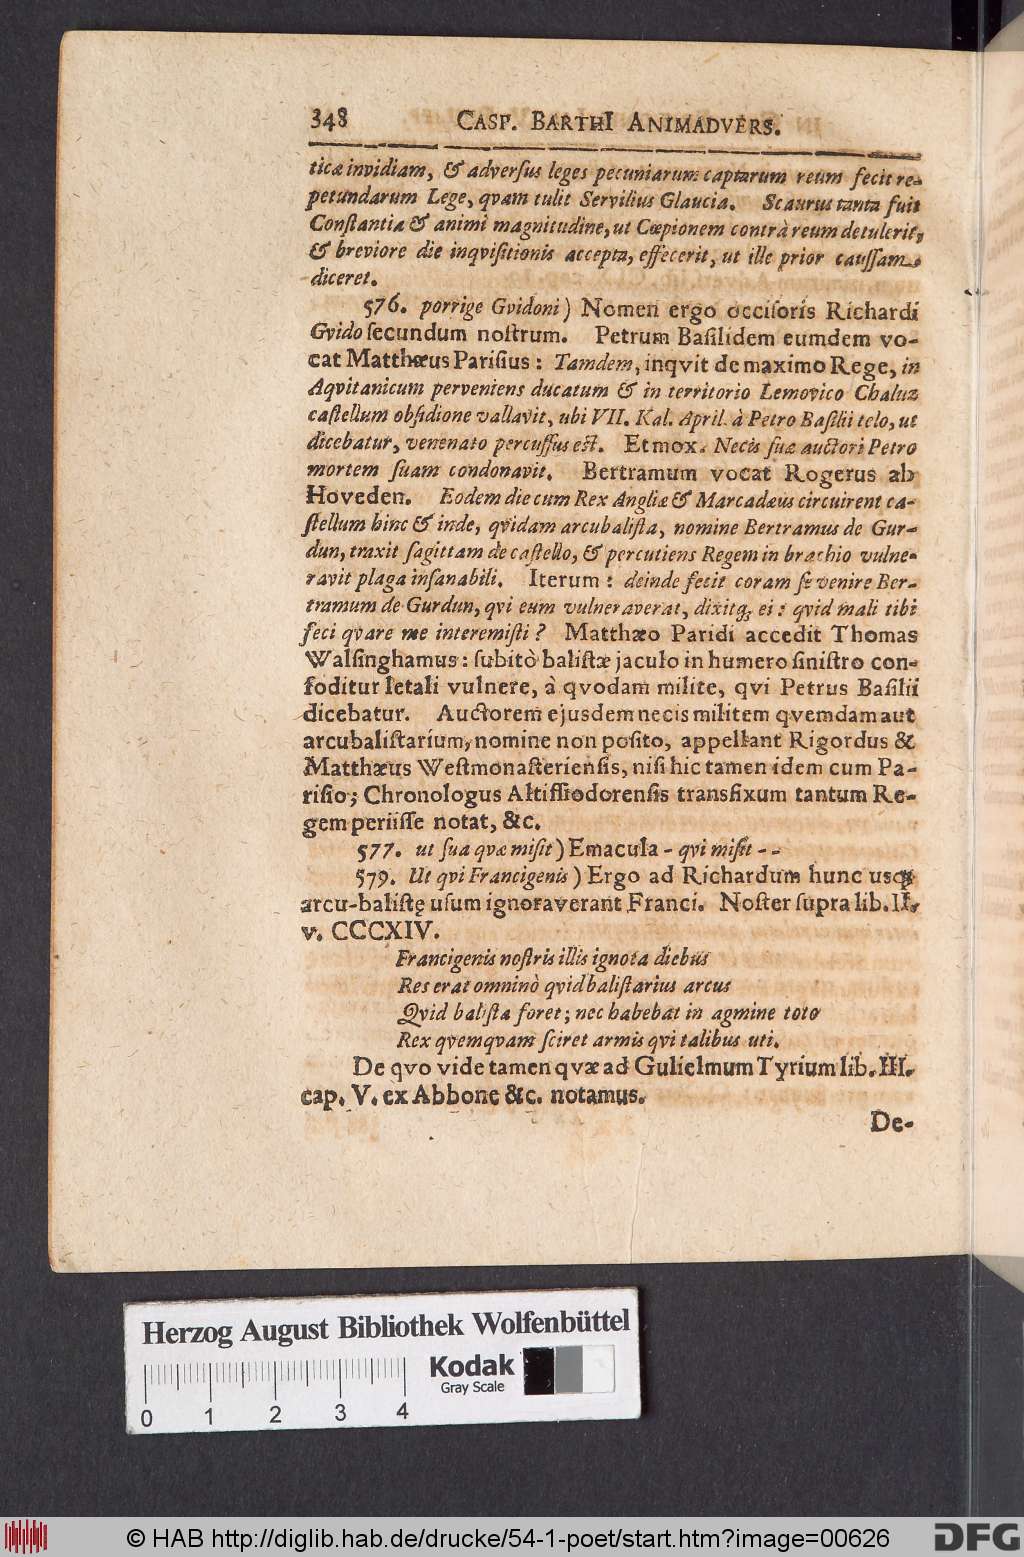 348 CASP. BARTHI ANIMADVERS.
ticæ invidiam, & adverſus leges pecuniarum captarum reum fecit re-
petundarum Lege, qvam tulit Servilius Glaucia. Scaurus tanta fuit
Conſtantia & animi magnitudine, ut Cœpionem contrà reum detulerit,
& breviore die inqviſitionis accepta, effecerit, ut ille prior cauſſam
diceret.
576. porrige Gvidoni) Nomen ergo occiſoris Richardi
Gvido ſecundum noſtrum. Petrum Baſilidem eumdem vo-
cat Matthæus Pariſius: Tamdem, inqvit de maximo Rege, in
Aqvitanicum perveniens ducatum & in territorio Lemovico Chaluz
caſtellum obſidione vallavit, ubi VII. Kal. April. à Petro Baſilii telo, ut
dicebatur, venenato percuſſus eſt. Et mox. Necis ſuæ auctori Petro
mortem ſuam condonavit. Bertramum vocat Rogerus ab
Hoveden. Eodem die cum Rex Angliæ & Marcadæus circuirent ca-
ſtellum hinc & inde, qvidam arcubaliſta, nomine Bertramus de Gur-
dun, traxit ſagittam de caſtello, & percutiens Regem in brachio vulne-
ravit plaga inſanabili. Iterum: deinde fecit coram ſe venire Ber-
tramum de Gurdun, qvi eum vulneraverat, dixitq; ei: qvid mali tibi
feci qvare me interemiſti? Matthæo Paridi accedit Thomas
Walſinghamus: ſubitò baliſtæ jaculo in humero ſiniſtro con-
foditur letali vulnere, à qvodam milite, qvi Petrus Baſilii
dicebatur. Auctorem ejusdem necis militem qvemdam aut
arcubaliſtarium, nomine non poſito, appellant Rigordus &
Matthæus Weſtmonaſterienſis, niſi hic tamen idem cum Pa-
riſio; Chronologus Altiſſiodorenſis transfixum tantum Re-
gem periiſſe notat, &c.
577. ut ſua qvæ miſit) Emacula - qvi miſit - -
579. Ut qvi Francigenis) Ergo ad Richardum hunc usq;
arcu-baliſtę uſum ignoraverant Franci. Noſter ſupra lib. II.
v. CCCXIV.
Francigenis noſtris illis ignota diebus
Res erat omninò qvid baliſtarius arcus
Qvid baliſta foret; nec habebat in agmine toto
Rex qvemqvam ſciret armis qvi talibus uti.
De qvo vide tamen qvæ ad Gulielmum Tyrium lib. III.
cap. V. ex Abbone &c. notamus.
De-
Herzog August Bibliothek Wolfenbüttel
Kodak
Gray Scale
0 1 2 3 4
© HAB http://diglib.hab.de/drucke/54-1-poet/start.htm?image=00626
DFG